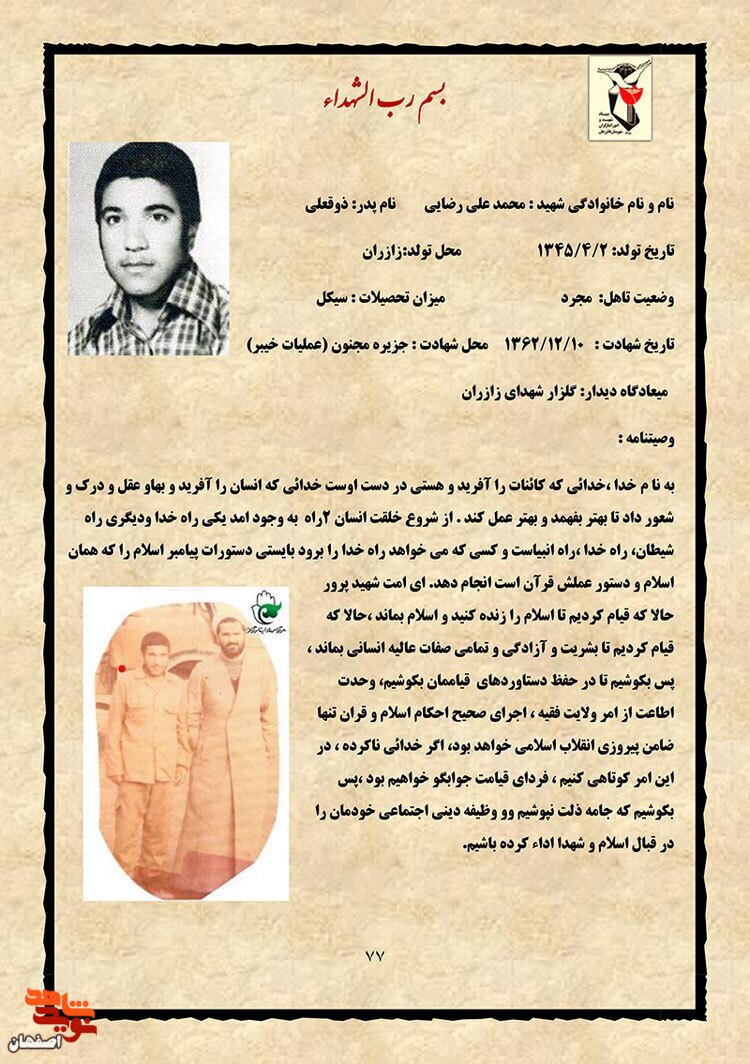 بسم رب الشهداء
نام و نام خانوادگی شهید : محمد علی رضایی نام پدر: ذوقعلی
تاریخ تولد: ۱۳۴۵/۴/۲ محل تولد:زازران
وضعیت تاهل: مجرد میزان تحصیلات : سیکل
تاریخ شهادت : ۱۳۶۲/۱۲/۱۰ محل شهادت : جزیره مجنون (عملیات خیبر)
میعادگاه دیدار: گلزار شهدای زازران
وصیتنامه :
به نا م خدا ،خدائی که کائنات را آفرید و هستی در دست اوست خدائی که انسان را آفرید و بهاو عقل و درک و
شعور داد تا بهتر بفهمد و بهتر عمل کند . از شروع خلقت انسان ۲راه به وجود امد یکی راه خدا ودیگری راه
شیطان، راه خدا ،راه انبیاست و کسی که می خواهد راه خدا را برود بایستی دستورات پیامبر اسلام را که همان
اسلام و دستور عملش قرآن است انجام دهد. ای امت شهید پرور
حالا که قیام کردیم تا اسلام را زنده کنید و اسلام بماند ،حالا که
قیام کردیم تا بشریت و آزادگی و تمامی صفات عالیه انسانی بماند ،
پس بکوشیم تا در حفظ دستاوردهای قیاممان بکوشیم، وحدت
اطاعت از امر ولایت فقیه ، اجرای صحیح احکام اسلام و قران تنها
ضامن پیروزی انقلاب اسلامی خواهد بود، اگر خدائی ناکرده ، در
این امر کوتاهی کنیم ، فردای قیامت جوابگو خواهیم بود ،پس
بکوشیم که جامه ذلت نپوشیم وو وظیفه دینی اجتماعی خودمان را
در قبال اسلام و شهدا اداء کرده باشیم.
۷۷
نوید شاهد
اصفهان